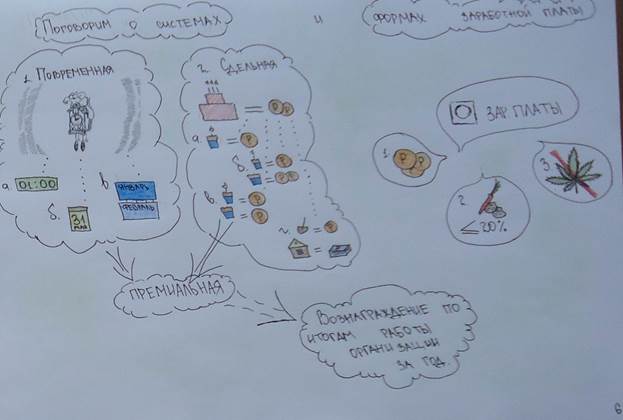 Поговорим о системах
и
формах заработной платы
1. Повременная
а 01:00
б. 31 мая
в. январь
февраль
2. Сдельная
= Р Р
а = Р
б. = Р
= Р Р
в. = Р
= Р
г. = Р
=
зар. платы
1. Р
2.
≤ 20%
3.
Премиальная
Вознаграждение по
итогам работы
организации
за год
6